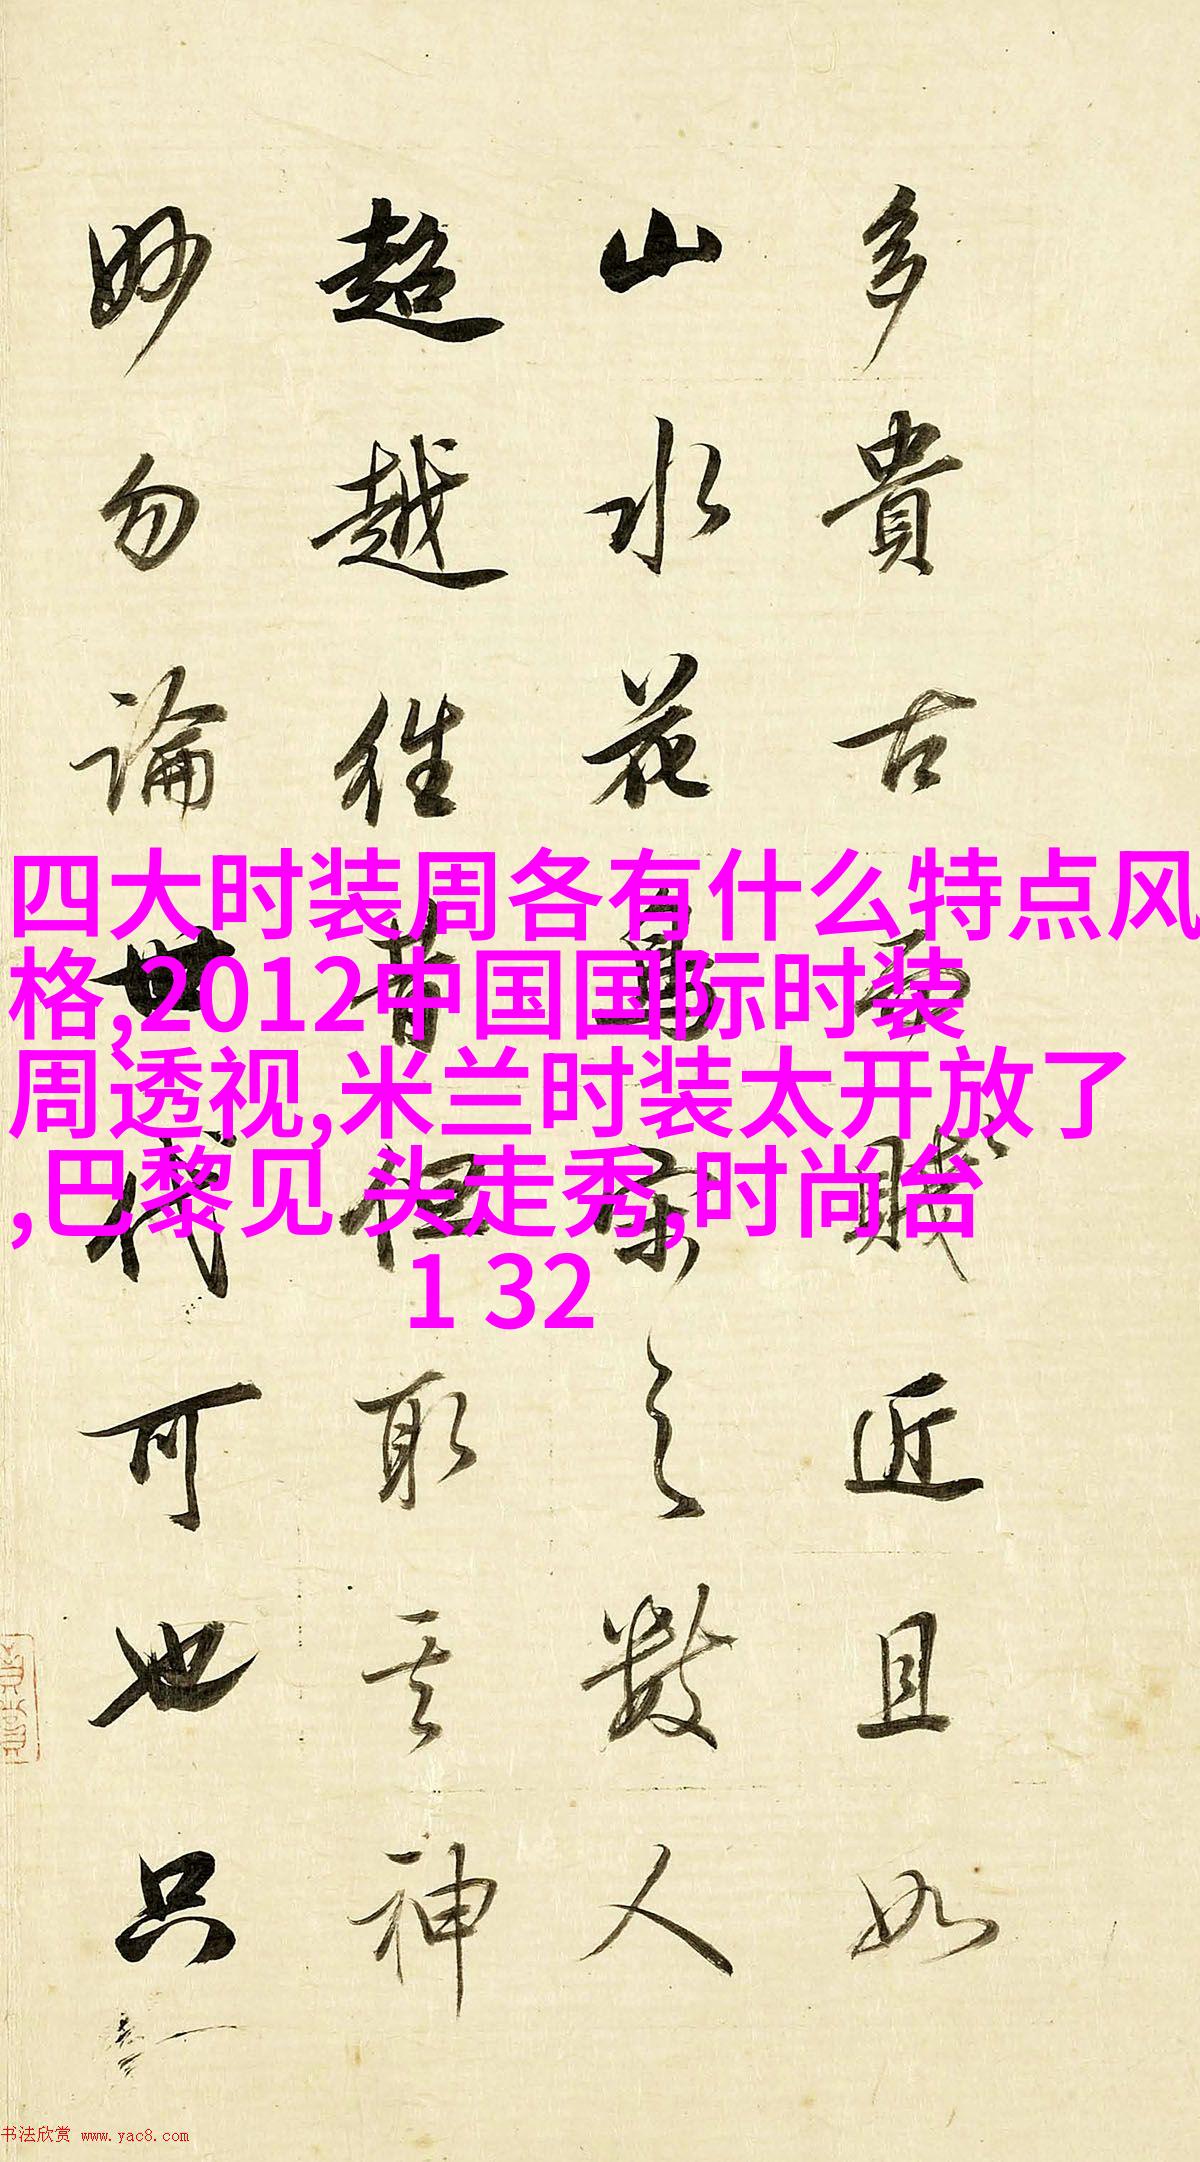 多貴古而賤近且如
山水花鳥之數人
超越往昔但取其神
妙勿論世代可也只
四大时装周各有什么特点风
格,2012中国国际时装
周透视,米兰时装太开放了
,巴黎见 头走秀,时尚台
1 32
书法欣赏 www.yac8.com